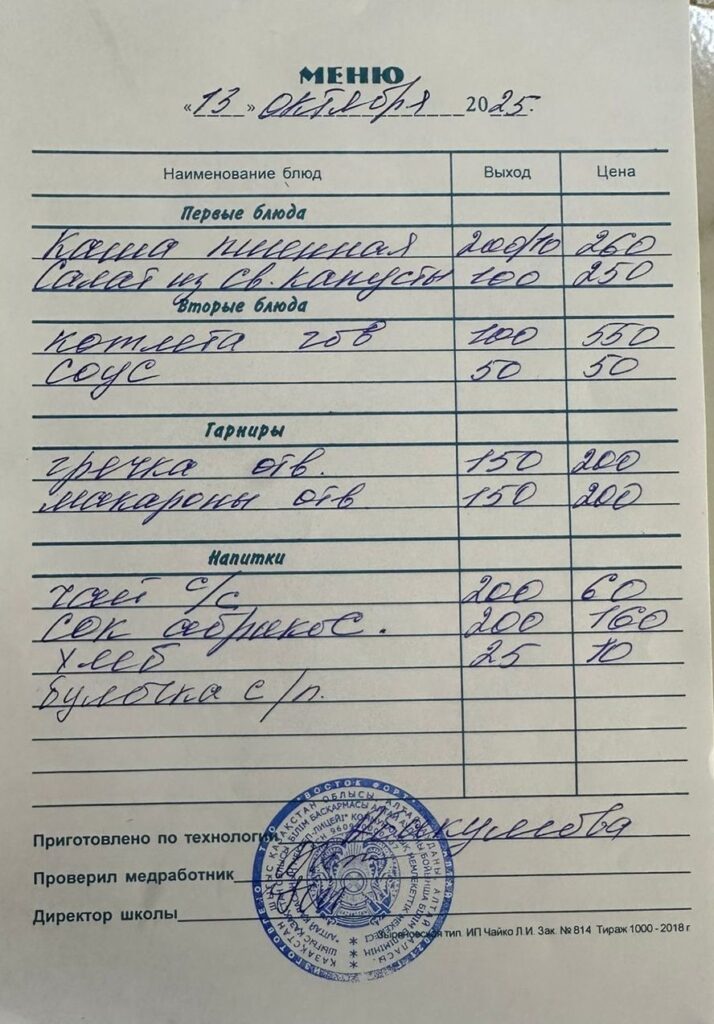 МЕНЮ
«13» октября 2025.
Наименование блюд Выход Цена
Первые блюда
Каша пшенная 200/10 260
Салат из св. капусты 100 250
Вторые блюда
котлета гов 100 550
соус 50 50
Гарниры
гречка отв. 150 200
макароны отв 150 200
Напитки
чай с/с 200 60
сок абрикос. 200 160
хлеб 25 10
булочка с/п.
Приготовлено по технологии
Проверил медработник
Директор школы
Зыряновская тип. ИП Чайко Л.И. Зак. № 814 Тираж 1000 - 2018 г